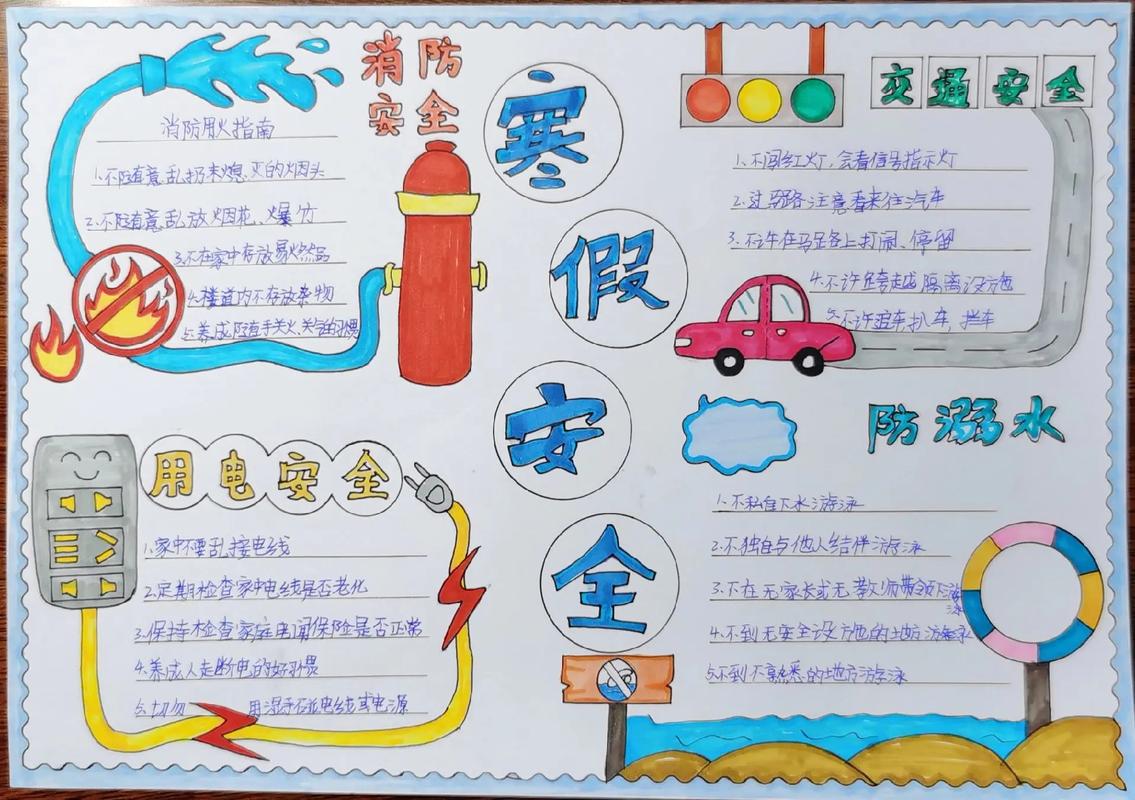 寒假安全
消防
安全
消防用火指南
1.不随意乱扔未熄灭的烟头
2.不随意乱放烟花、爆竹
3.不在家中存放易燃品
4.楼道内不存放杂物
5.养成随手关火、关气的习惯
交通安全
1.不闯红灯，会看信号指示灯
2.过马路注意看来往汽车
3.不许在马路上打闹、停留
4.不许跨越隔离设施
5.不许追车、扒车，拦车
用电安全
1.家中不要乱接电线
2.定期检查家中电线是否老化
3.保持检查家庭电闸保险是否正常
4.养成人走断电的好习惯
5.切勿 用湿手碰电线或电源
防溺水
1.不私自下水游泳
2.不独自与他人结伴游泳
3.不在无家长或无教师带领下游泳
4.不到无安全设施的地方游泳
5.不到不熟悉的地方游泳